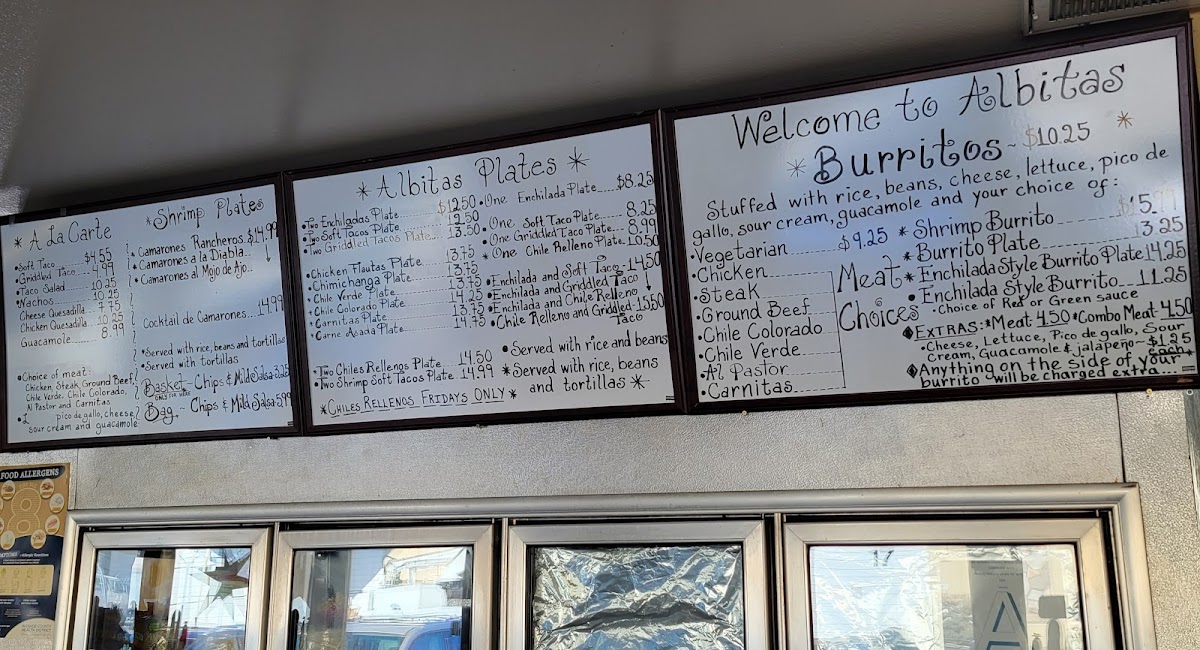 * A La Carte
• Soft Taco $4.55
• Griddled Taco 4.99
• Taco Salad 10.25
• Nachos 10.25
Cheese Quesadilla 9.75
Chicken Quesadilla 10.25
Guacamole 8.99
• Choice of meat:
Chicken, Steak, Ground Beef,
Chile Verde, Chile Colorado,
Al Pastor and Carnitas
pico de gallo, cheese
sour cream and guacamole
* Shrimp Plates
• Camarones Rancheros $14.99
* Camarones a la Diabla
* Camarones al Mojo de Ajo
Cocktail de Camarones 14.99
• Served with rice, beans and tortillas
* Served with tortillas
Basket - Chips & Mild Salsa - 3.25
Bag - Chips & Mild Salsa - 5.99
* Albitas Plates *
• Two Enchiladas Plate $12.50
• Two Soft Tacos Plate 12.50
• Two Griddled Tacos Plate 13.50
• Chicken Flautas Plate 13.75
• Chimichanga Plate 13.75
• Chile Verde Plate 13.75
• Chile Colorado Plate 14.25
• Carnitas Plate 13.75
• Carne Asada Plate 14.75
• Two Chiles Rellenos Plate 14.50
• Two Shrimp Soft Tacos Plate 14.99
*Chiles Rellenos Fridays Only*
• One Enchilada Plate $8.25
• One Soft Taco Plate 8.25
• One Griddled Taco Plate 8.99
* One Chile Relleno Plate 10.50
• Enchilada and Soft Taco 14.50
• Enchilada and Griddled Taco
• Enchilada and Chile Relleno
• Chile Relleno and Griddled Taco 15.50
• Served with rice and beans
* Served with rice, beans
and tortillas *
Welcome to Albitas
* Burritos ~ $10.25 *
Stuffed with rice, beans, cheese, lettuce, pico de
gallo, sour cream, guacamole and your choice of:
• Vegetarian $9.25
• Chicken
• Steak
• Ground Beef
• Chile Colorado
• Chile Verde
• Al Pastor
• Carnitas
Meat
Choices
* Shrimp Burrito $15.99
* Burrito Plate 13.25
* Enchilada Style Burrito Plate 14.25
• Enchilada Style Burrito 11.25
• Choice of Red or Green sauce
Extras: *Meat 4.50 *Combo Meat 4.50
• Cheese, Lettuce, Pico de gallo, Sour
Cream, Guacamole & jalapeño - $1.25 each
Anything on the side of your
burrito will be charged extra...
FOOD ALLERGENS
A